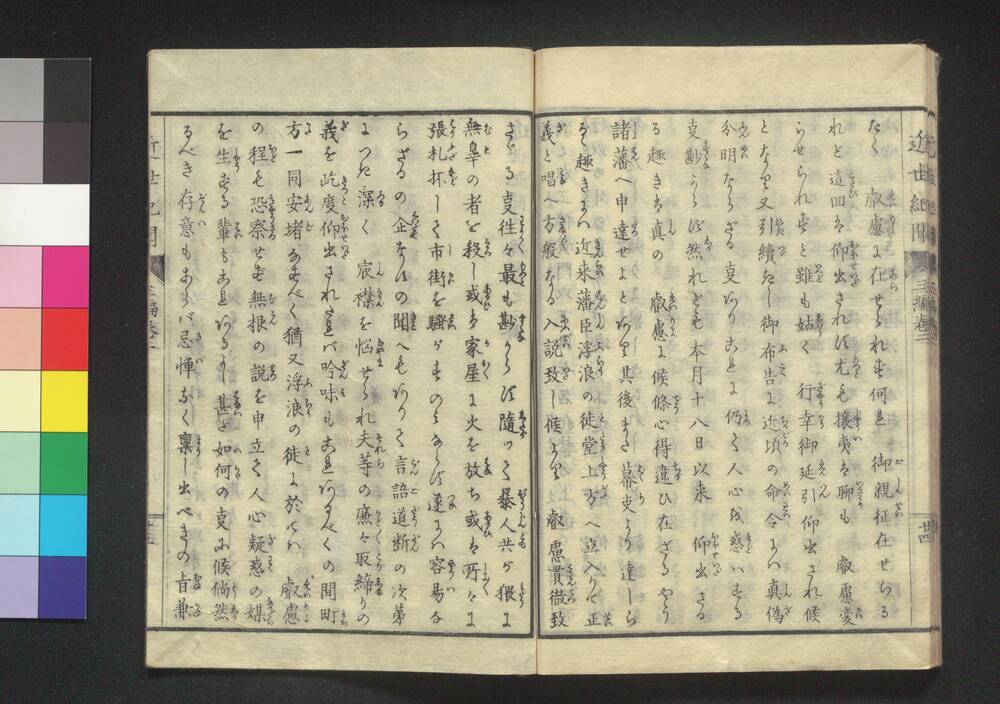 近世紀聞 三編巻二
たく 叡慮に在せられ尓何日 御親征在せらる
れど這回は仰出されず尤も攘夷は聊も 叡慮変
らせられずと雖も姑く 行幸御延引仰出され候
となり又引續きし御布告に近頃の命令には真偽
分明ならざる事あり為に仍て人心疑惑いたする
事尠からず然れども本月十八日以来 仰出さる
る趣きは真の 叡慮に候條心得違ひ在ざるやう
諸藩へ申達せよとなり其後また幕吏より達しら
るる趣きには近来藩臣浮浪の徒堂上方へ立入りて正
義と唱へ方般なる入説致し候より 叡慮貫徹致
さゞる事徃々最も尠からず隨つて暴人共が猥に
無辜の者を殺し或は家屋に火を放ち或は所々に
張札抔して市街を騒がすのみならず遂には容易な
らざるの企なすの聞へもありて言語道断の次第
につき深く 宸襟を悩せられ夫等の廉々取締りの
義を屹度仰出されたれば吟味もこれあるべくの間町
方一同安堵なすべく猶又浮浪の徒に於ては 叡慮
の程も恐察せず無根の説を申立て人心疑惑の媒
を生ずる輩もこれあるよし甚だ如何の事に候倘然
るべき存意もあらば忌憚なく禀し出べきの旨兼